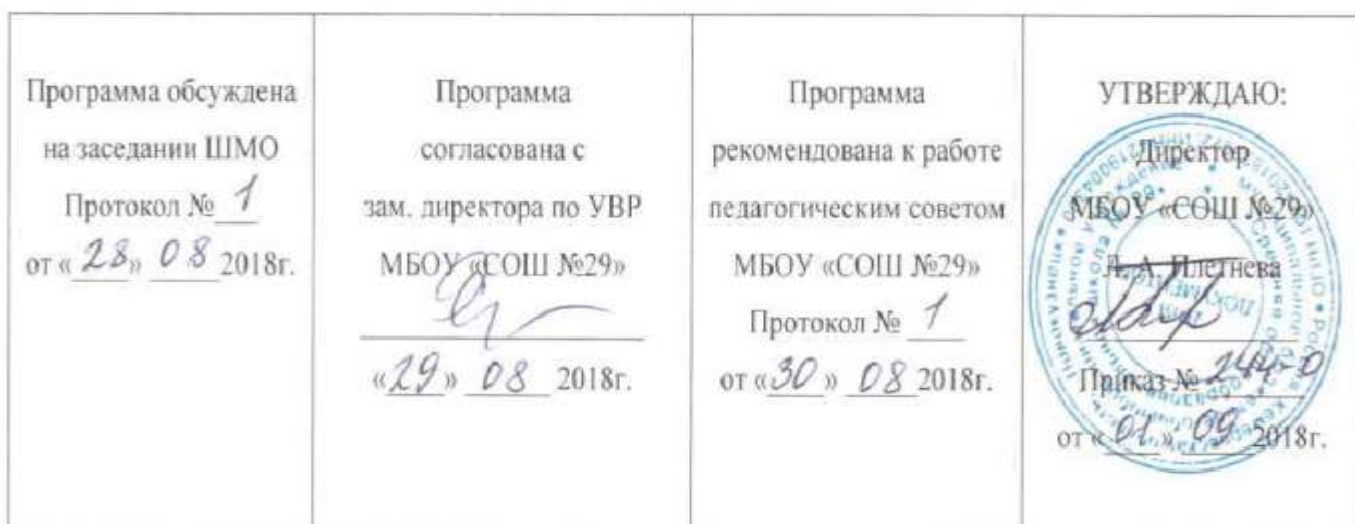 Программа обсуждена
на заседании ШМО
Протокол № 1
от « 28 » 08 2018г.
Программа
согласована с
зам. директора по УВР
МБОУ «СОШ №29»
« 29 » 08 2018г.
Программа
рекомендована к работе
педагогическим советом
МБОУ «СОШ №29»
Протокол № 1
от « 30 » 08 2018г.
УТВЕРЖДАЮ:
Директор
МБОУ «СОШ №29»
Л. А. Плетнева
Приказ № 244-О
от « 01 » 09 2018г.